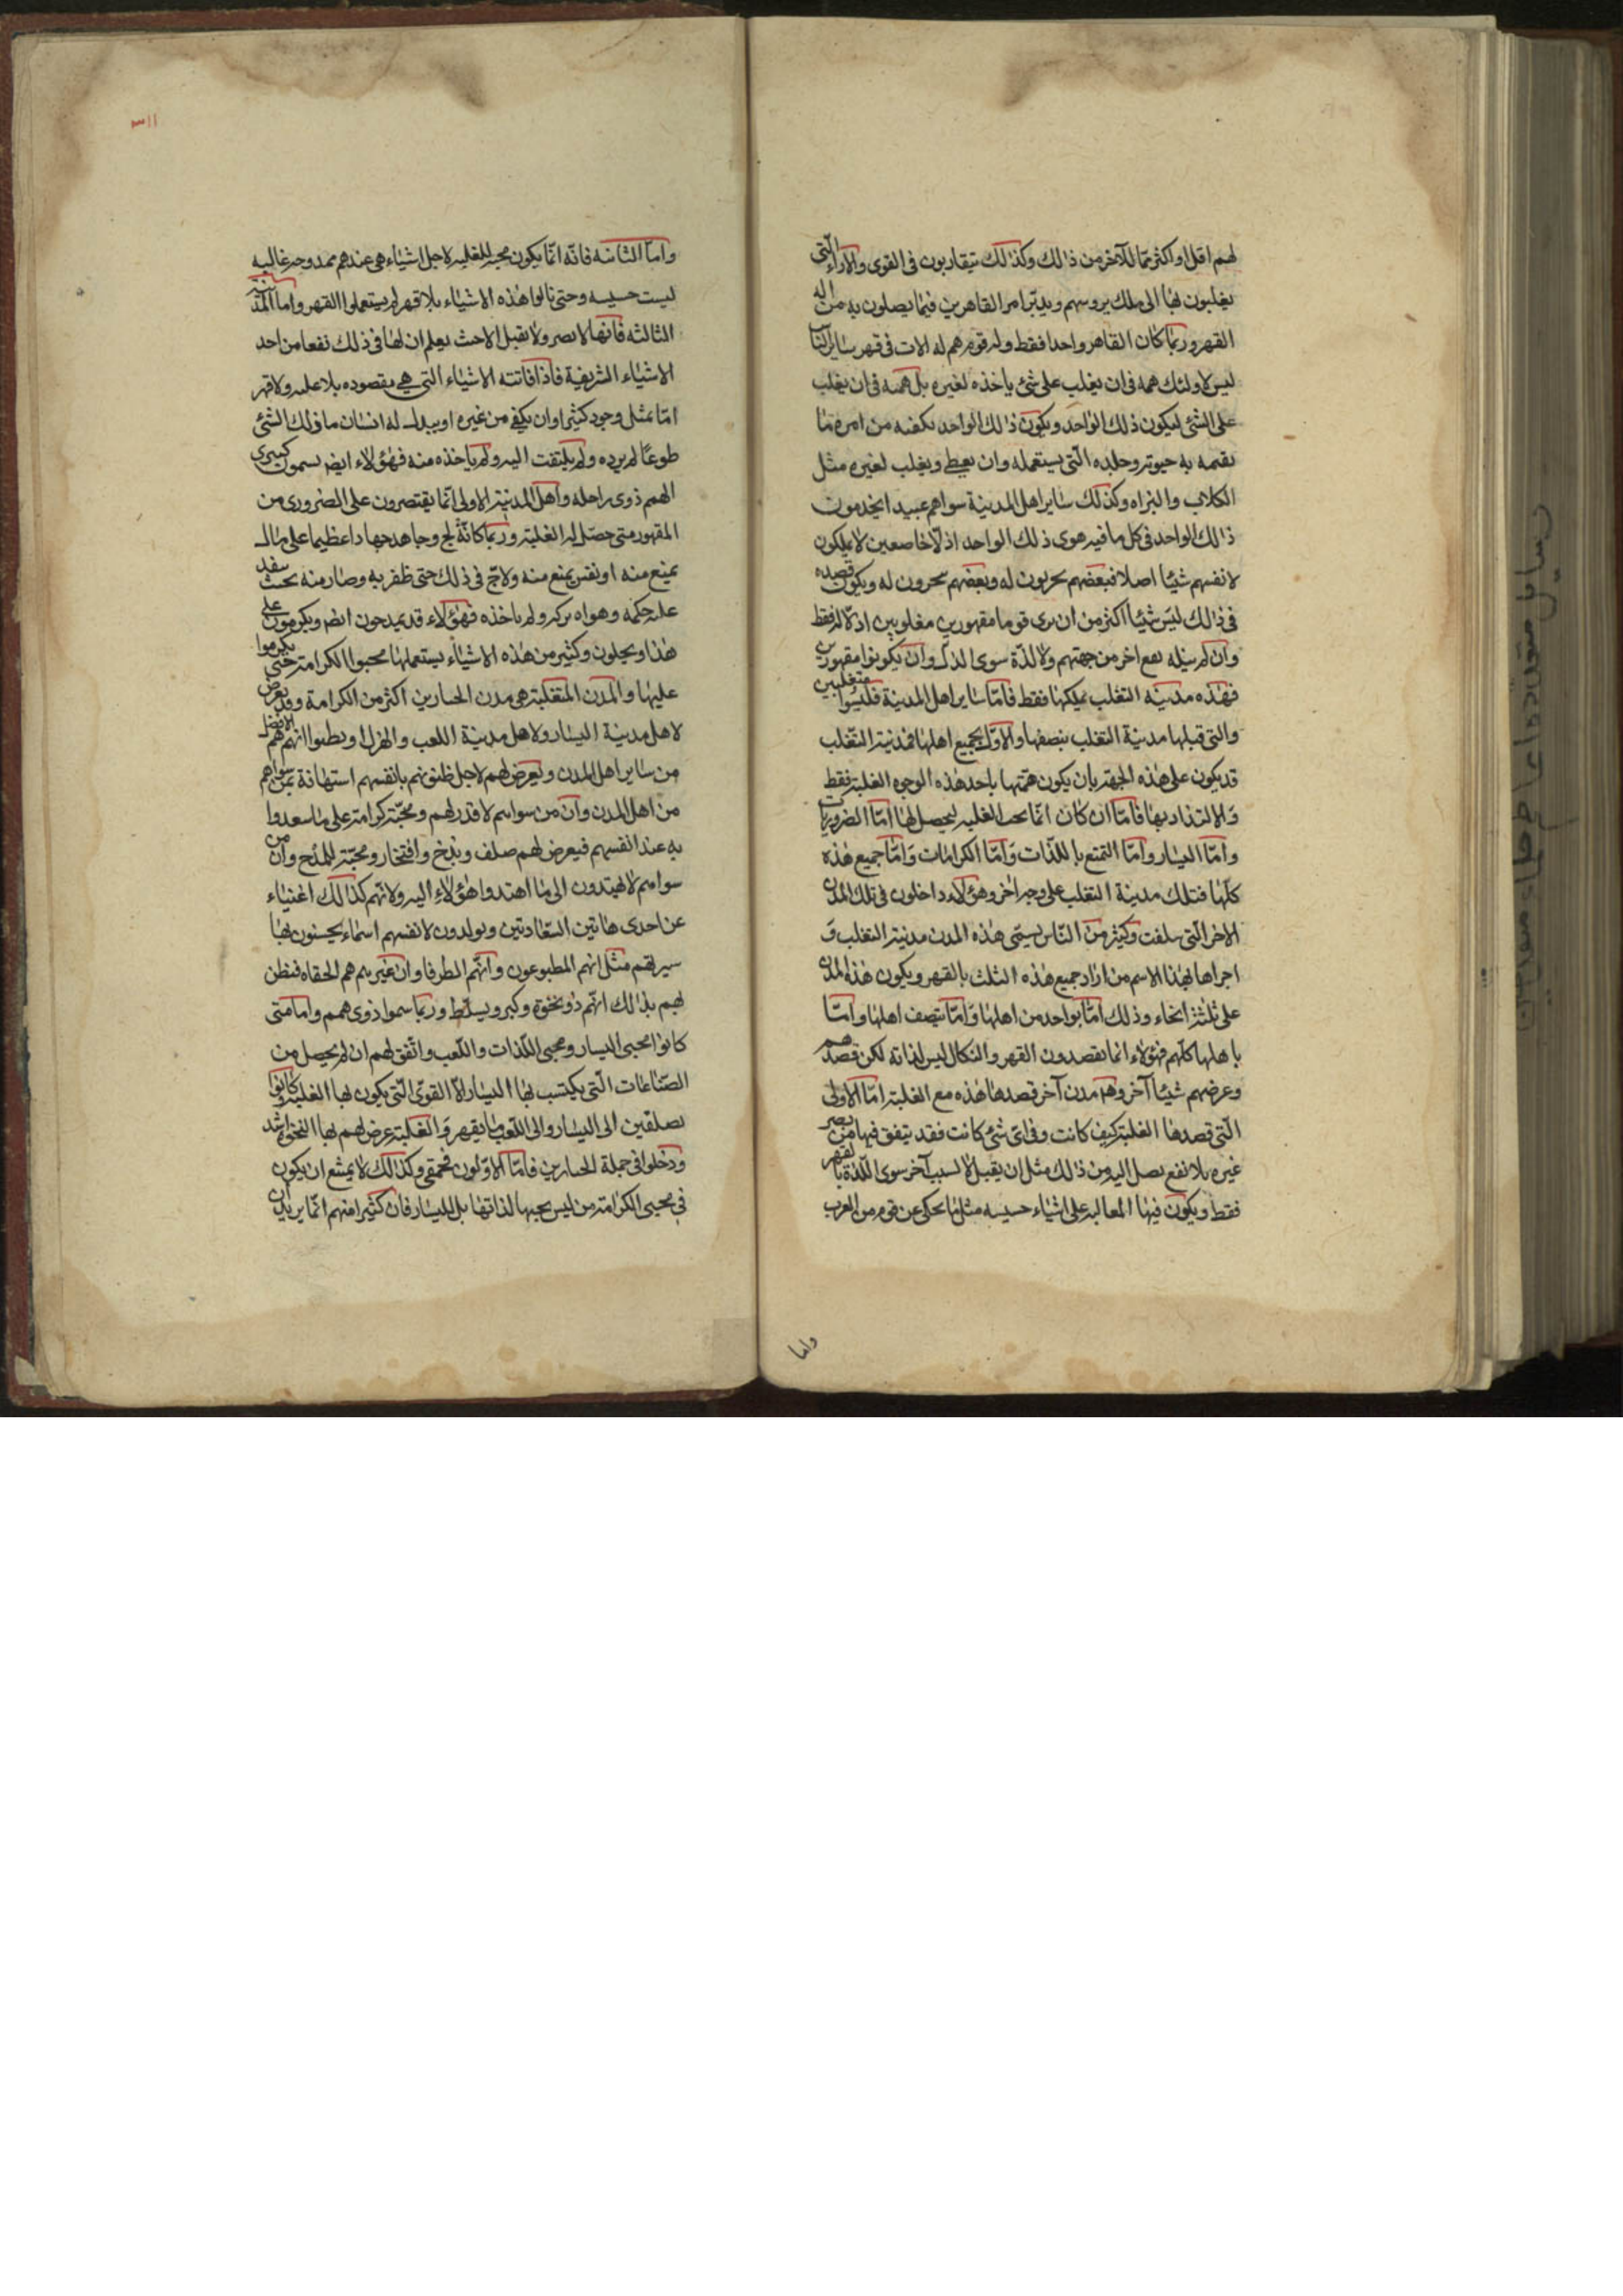 لهم اقل او اكثر مما للآخر من ذالك وكذالك يتقاربون فى القوى والآراء الّتى
يغلبون بها الى ملك يروسهم ويدبّر امر القاهرين فيما يصلون به من اله
القهر وربّما كان القاهر واحدا فقط وله قوم هم له الات فى قهر ساير النّاس
ليس لاولئك همه فى ان يغلب على شئ ياخذه لغيره بل همه فى ان يغلب
على الشّئ ليكون ذلك الواحد ويكون ذالك الواحد يكفنه من امره ما
يقيمه به حيوته وجلده الّتى يستعمله وان يعيط ويغلب لغيره مثل
الكلاب والبزاه وكذلك ساير اهل المدينة سواهم عبيدا يخدمون
ذالك الواحد فى كل ما فيه هوى ذلك الواحد اذلّا خاضعين لا يملكون
لانفسهم شيئا اصلا فبعضهم يحربون له وبعضهم يتحرون له ويكون قصده
فى ذالك ليس شيئا اكثر من ان يرى قوما مقهورين مغلوبين اذلّا له فقط
وان لم ينله نفع اخر من جهتهم ولا لذّة سوى الذل وان يكونوا مقهورين
فهذه مدينة التغلب بملكها فقط فامّا ساير اهل المدينة فليسوا متغلبين
والتى قبلها مدينة التغلب بنصفها والاوّل بجميع اهلها فمدينة التّغلب
قد يكون على هذه الجهة بان يكون همّتها باحد هذه الوجوه الغلبة فقط
والالتذاذ بها فامّا ان كان انّما تحب الغلبه ليحصل لها امّا الضروريات
وامّا اليسار وامّا التمتع باللذّات وامّا الكرامات وامّا جميع هذه
كلّها فتلك مدينة التغلب على وجه اخر وهؤلاء داخلون فى تلك المدن
الاخر الّتى سلفت وكثير من النّاس يسمّى هذه المدن مدينة التغلب و
اجراها بهذا الاسم من اراد جميع هذه الثلث بالقهر ويكون هذه المدن
على ثلثة انحاء وذلك امّا بواحد من اهلها وامّا بنصف اهلها وامّا
باهلها كلّهم فهؤلاء انّما يقصدون القهر والنكال ليس لذاته لكن قصدهم
وغرضهم شيئا آخر وهم مدن آخر قصدها هذه مع الغلبة امّا الاولى
الّتى قصدها الغلبة كيف كانت وفى اىّ شئ كانت فقد يتفق فيها من يضر
غيره بلا نفع يصل اليه من ذالك مثل ان يقتل لا لسبب آخر سوى اللّذة بالقهر
فقط ويكون فيها المغالبه على اشياء خسيسه مثل ما يحكى عن قوم من العرب
واما
٣١١
وامّا الثانيه فانّه انّما يكون محبه للغلبه لاجل اشياء هى عندهم ممدوحه غاليه
ليست خسيسه وحتى نالوا هذه الاشياء بلا قهر لم يستعملوا القهر واما المدنية
الثالثه فانها لا يضر ولا يقتل الا حيث يعلم ان لها فى ذلك نفعا من احد
الاشياء الشريفية فاذا فاتته الاشياء التى هى مقصوده بلا غلبه ولا قهر
امّا بمثل وجود كثير او ان يكفى من غيره او يبذل له انسان ما ذلك الشّئ
طوعًا لم يرده ولم يلتفت اليه ولم ياخذه منه فهؤلاء ايضا يسمون كبيرى
الهمم ذوى راحله واهل المدينة الاولى انّما يقتصرون على الضرورى من
المقهور متى حصّل له الغلبة وربّما كانة لج وجاهد جهادا عظيما على مال
يمنع منه او نفس يمنع منه ولاجّ فى ذلك حتى ظفر به وصار منه بحيث ينفد
عليه حكمه وهواه تركه ولم ياخذه فهؤلاء قد يمدحون ايضا ويكرمون على
هذا ويجلون وكثير من هذه الاشياء يستعملها محبوا الكرامة حتى يكرموا
عليها والمدن المتغلبة هى مدن الجبارين اكثر من الكرامة وقد يعرض
لاهل مدينة اليسار ولاهل مدينة اللعب والهزل او يظنوا انهم هم الافضل
من ساير اهل المدن ويعرض لهم لاجل ظنونهم بانفسهم استهانة بمن سواهم
من اهل المدن وان من سواهم لا قدر لهم ومحبّة كرامة على ما سعدوا
به عند انفسهم فيعرض لهم صلف وبذخ وافتخار ومحبّة للمدح وان من
سواهم لا يهتدون الى ما اهتدوا هؤلاء اليه ولانّهم كذالك اغنياء
عن احدى هاتين السّعادتين ويولدون لانفسهم اسماء يحسنون بها
سيرتهم مثل انهم المطبوعون وانّهم الظرفا وان غيرهم هم الحفاه فنظن
لهم بذالك انّهم ذو نخوة وكبر وبسلّط وربّما سموا ذوى همم وامّا متى
كانوا محبى اليسار ومحبى اللّذات واللّعب واتّفق لهم ان لم يحصل من
الصّناعات الّتى يكتسب بها اليسار الّا القوّى الّتى يكون بها الغلبة وكانوا
يصلتين الى اليسار والى اللّعب ما يقهر والغلبة عرض لهم بها النخوة اشد
ودخلوا فى جملة الجبارين فامّا الاوّلون فحمقى وكذالك لا يمتنع ان يكون
فى محبى الكرامة من ليس يحبها لذاتها بل لليسار فان كثيرا منهم انّما يريد ان